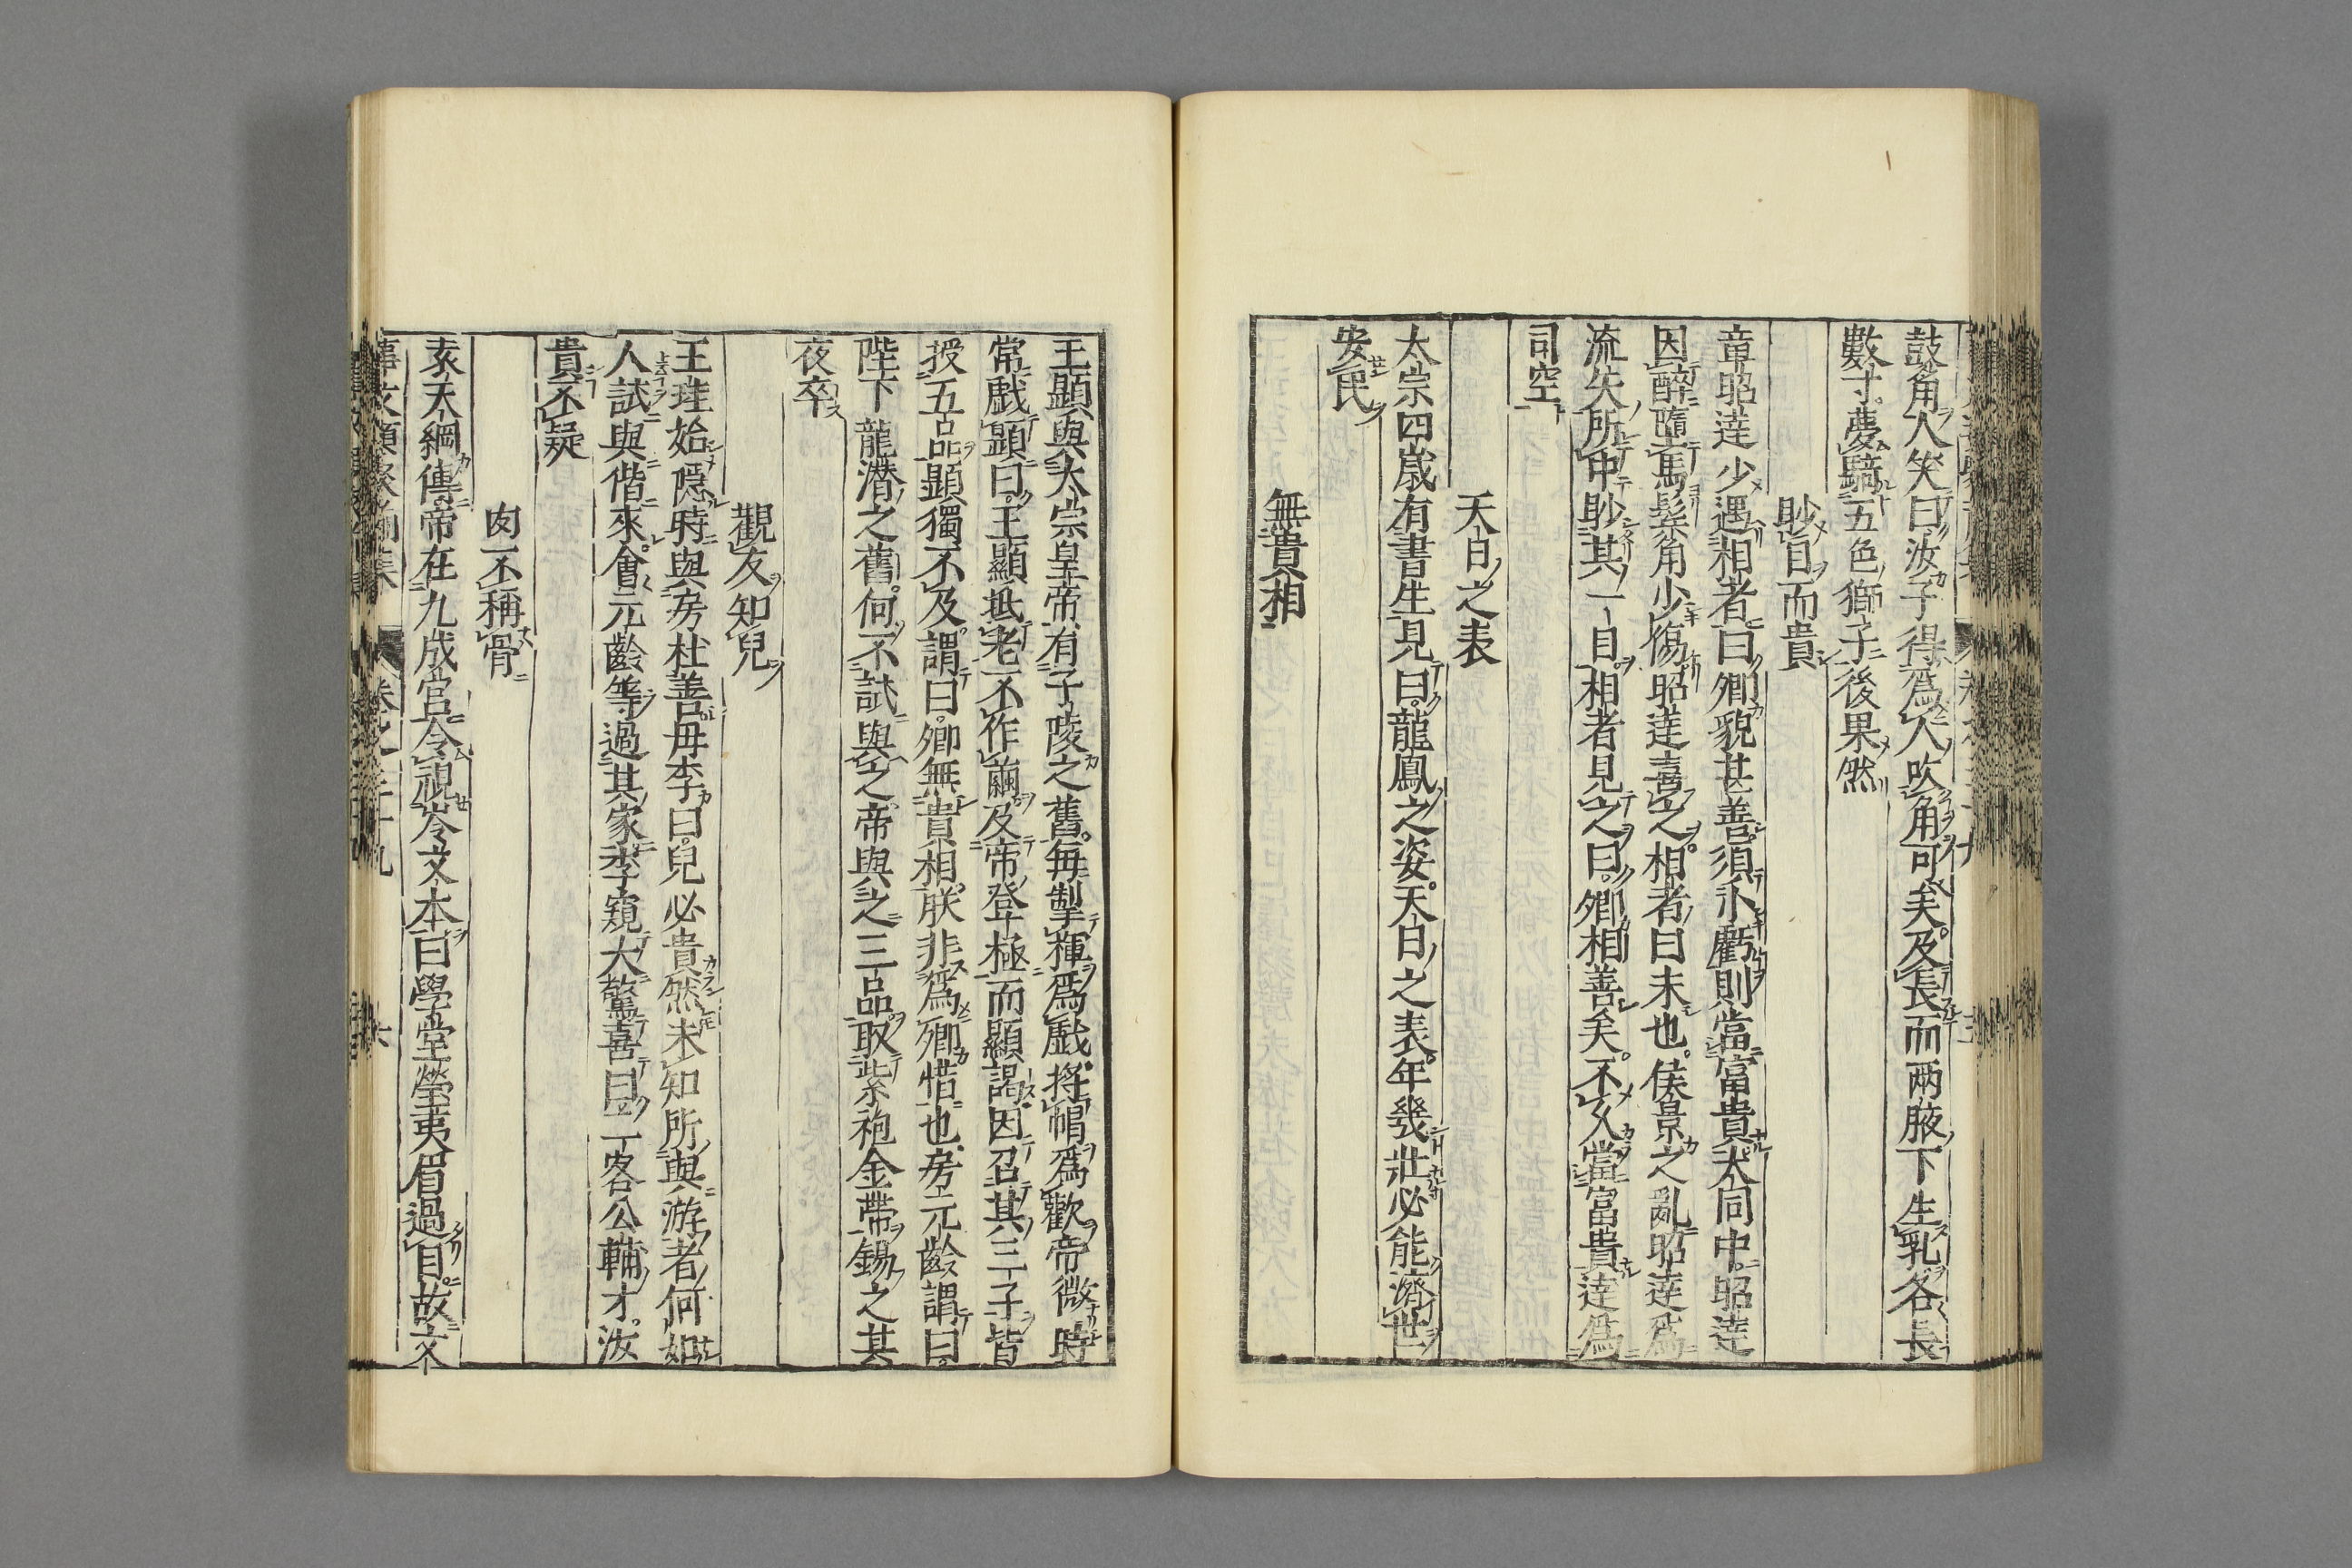 鼓角人笑曰汝子得爲人吹角可矣及長而兩腋下生乳各長
數寸夢騎五色獅子後果然
眇目而貴
章昭達少遇相者曰卿貌甚善須小虧則當富貴大同中昭達
因醉墮馬鬂角少傷昭達喜之相者曰未也侯景之亂昭達爲
流矢所中眇其一目相者見之曰卿相善矣不久當富貴達爲
司空
天日之表
太宗四歲有書生見曰龍鳳之姿天日之表年幾壯必能濟世
安民
無貴相
王顯與太宗皇帝有子陵之舊每掣褌爲戲將帽爲歡帝微時
常戲顯曰王顯抵老不作繭及帝登極而顯謁因召其三子皆
授五品顯獨不及謂曰卿無貴相朕非爲卿惜也房元齡謂曰
陛下龍潛之舊何不試與之帝與之三品取紫袍金帶錫之其
夜卒
觀友知兒
王珪始隱時與房杜善母李曰兒必貴然未知所與游者何如
人試與偕來會元齡等過其家李窺大驚喜曰二客公輔才汝
貴不疑
肉不稱骨
袁天綱傳帝在九成宮令視岑文本曰學堂瑩夷眉過目故文